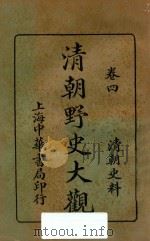 卷四
清朝史料
清朝野史大觀
上海中華書局印行
www.toopoo.com